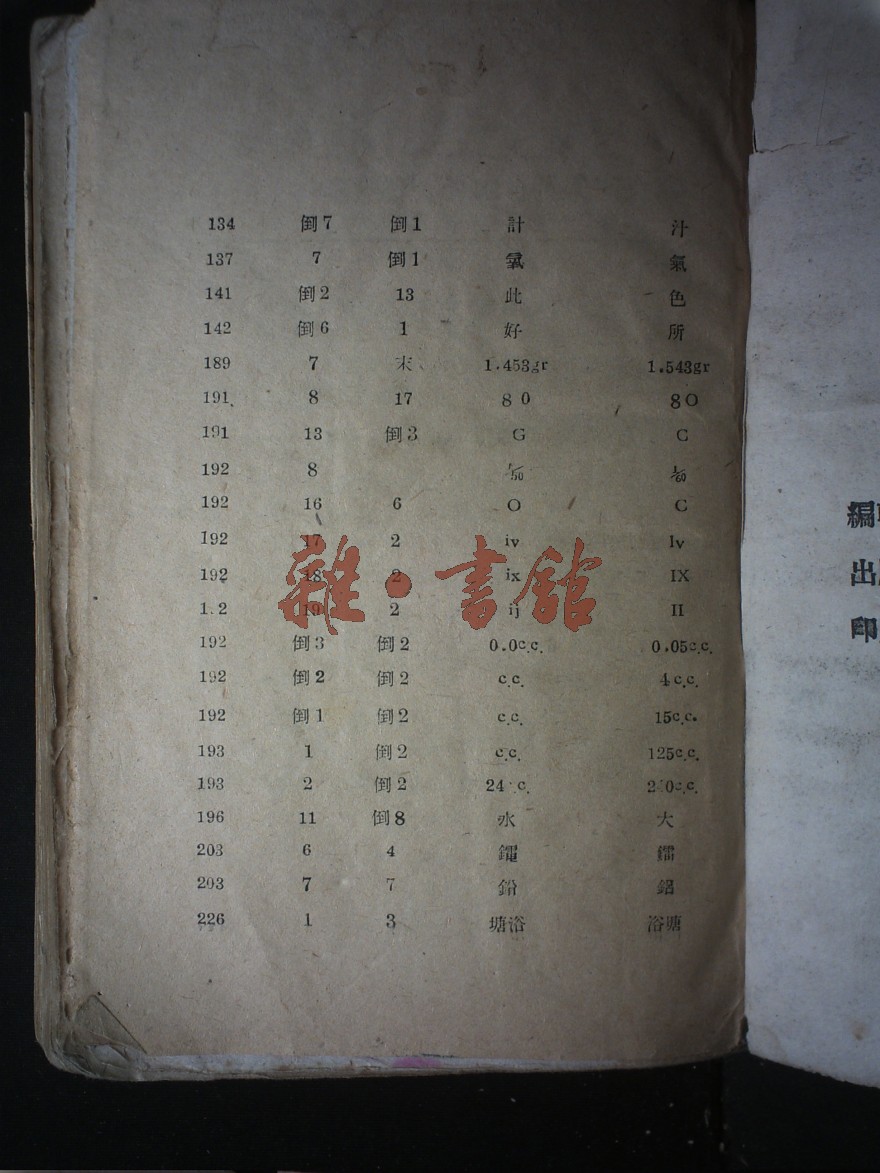 134 倒7 倒1 計 汁
137 7 倒1 氯 氣
141 倒2 13 此 色
142 倒6 1 好 所
189 7 末 1.453gr 1.543gr
191 8 17 8 0 8 O
191 13 倒3 G C
192 8 1/50 1/60
192 16 6 O C
192 17 2 iv Iv
192 18 2 ix IX
1.2 19 2 ij II
192 倒3 倒2 0.0c.c. 0.05c.c.
192 倒2 倒2 c.c. 4c.c.
192 倒1 倒2 c.c. 15c.c.
193 1 倒2 c.c. 125c.c.
193 2 倒2 24 c. 2 0c.c.
196 11 倒8 水 大
203 6 4 鑼 鐳
203 7 7 鉛 鋁
226 1 3 塘浴 浴塘
雜·書館
編
出
印